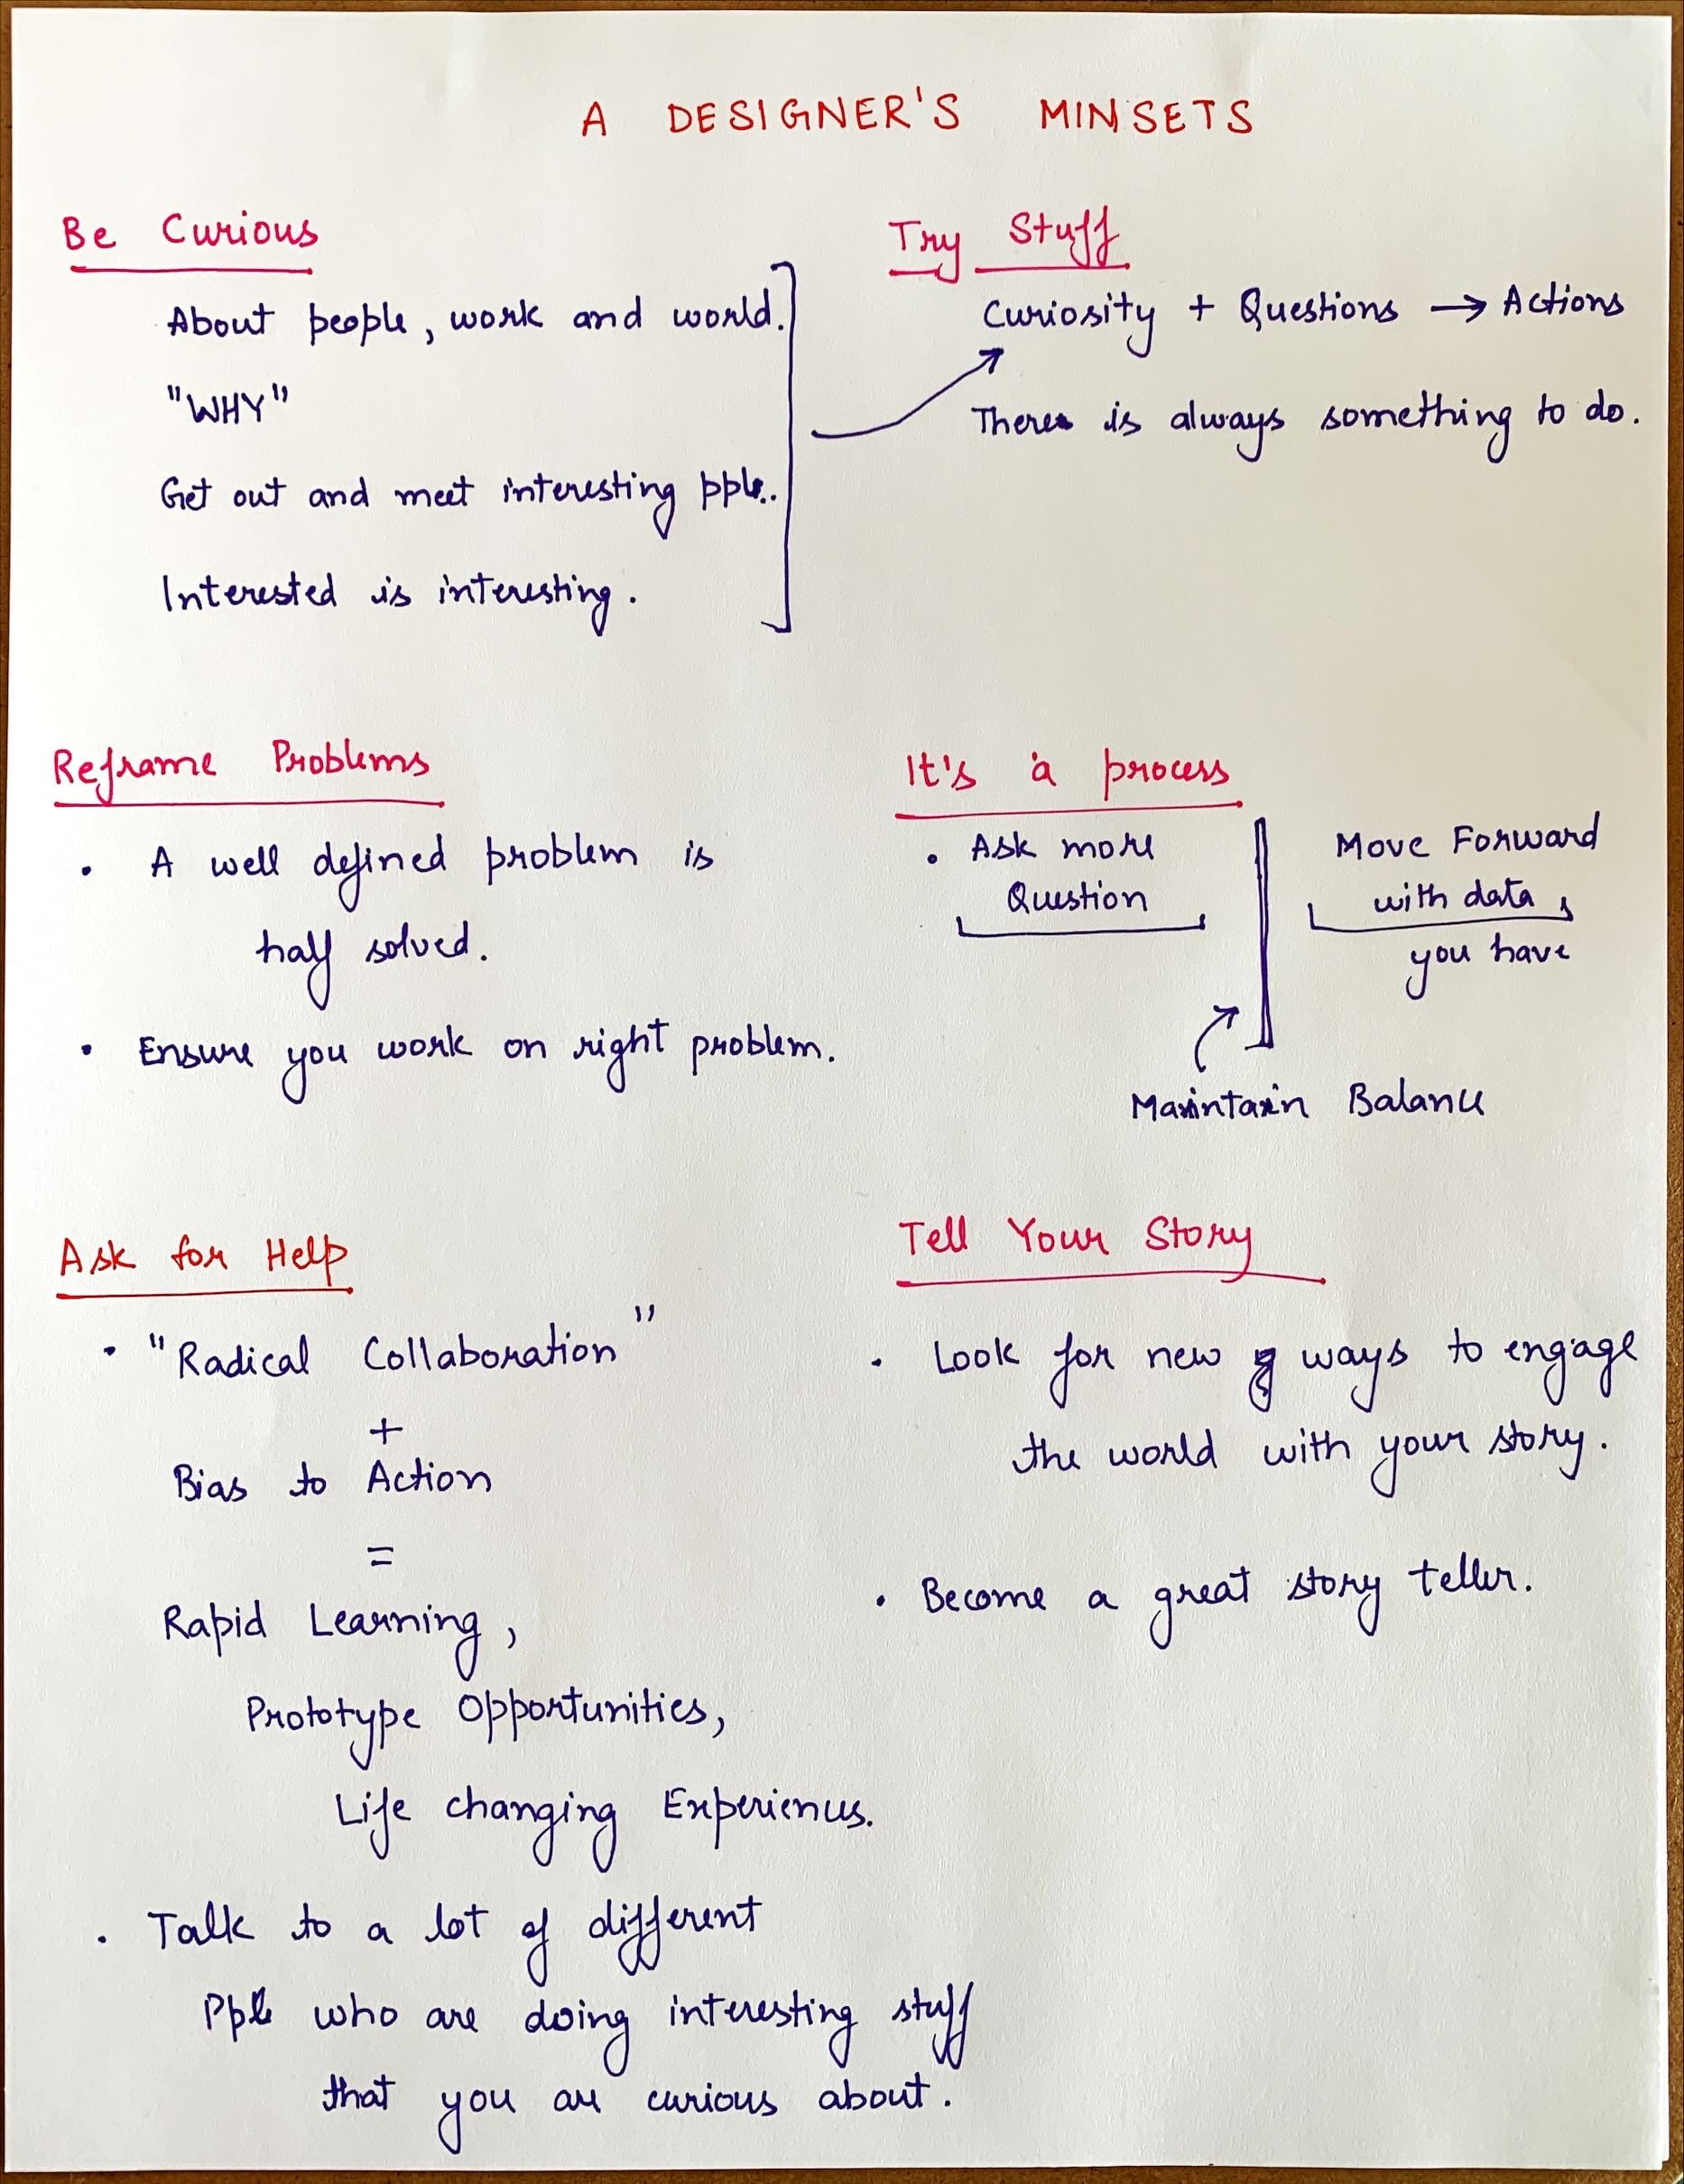 A DESIGNER'S MINSETS
Be Curious
About people, work and world.
"WHY"
Get out and meet interesting pple.
Interested is interesting.
Try Stuff
Curiosity + Questions → Actions
There is always something to do.
Reframe Problems
• A well defined problem is
half solved.
• Ensure you work on right problem.
It's a process
• Ask more
Question
Move Forward
with data
you have
Maintain Balance
Ask for Help
• "Radical Collaboration"
+
Bias to Action
=
Rapid Learning,
Prototype Opportunities,
Life changing Experiences.
• Talk to a lot of different
Pple who are doing interesting stuff
that you are curious about.
Tell Your Story
• Look for new ways to engage
the world with your story.
• Become a great story teller.